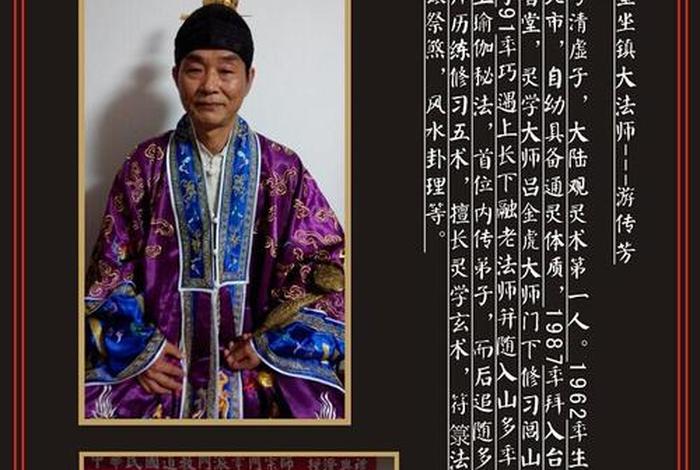 坐镇大法师---游传芳
清虚子，大陆观灵术第一人。1962年生
市，自幼具备通灵体质，1987年拜入台
堂，灵学大师吕金虎大师门下修习闾山
91年巧遇上长下融老法师并随入山多年
瑜伽秘法，首位内传弟子，而后追随多
历练修习五术，擅长灵学玄术，符箓法
祭煞，风水卦理等。
中華民國道教